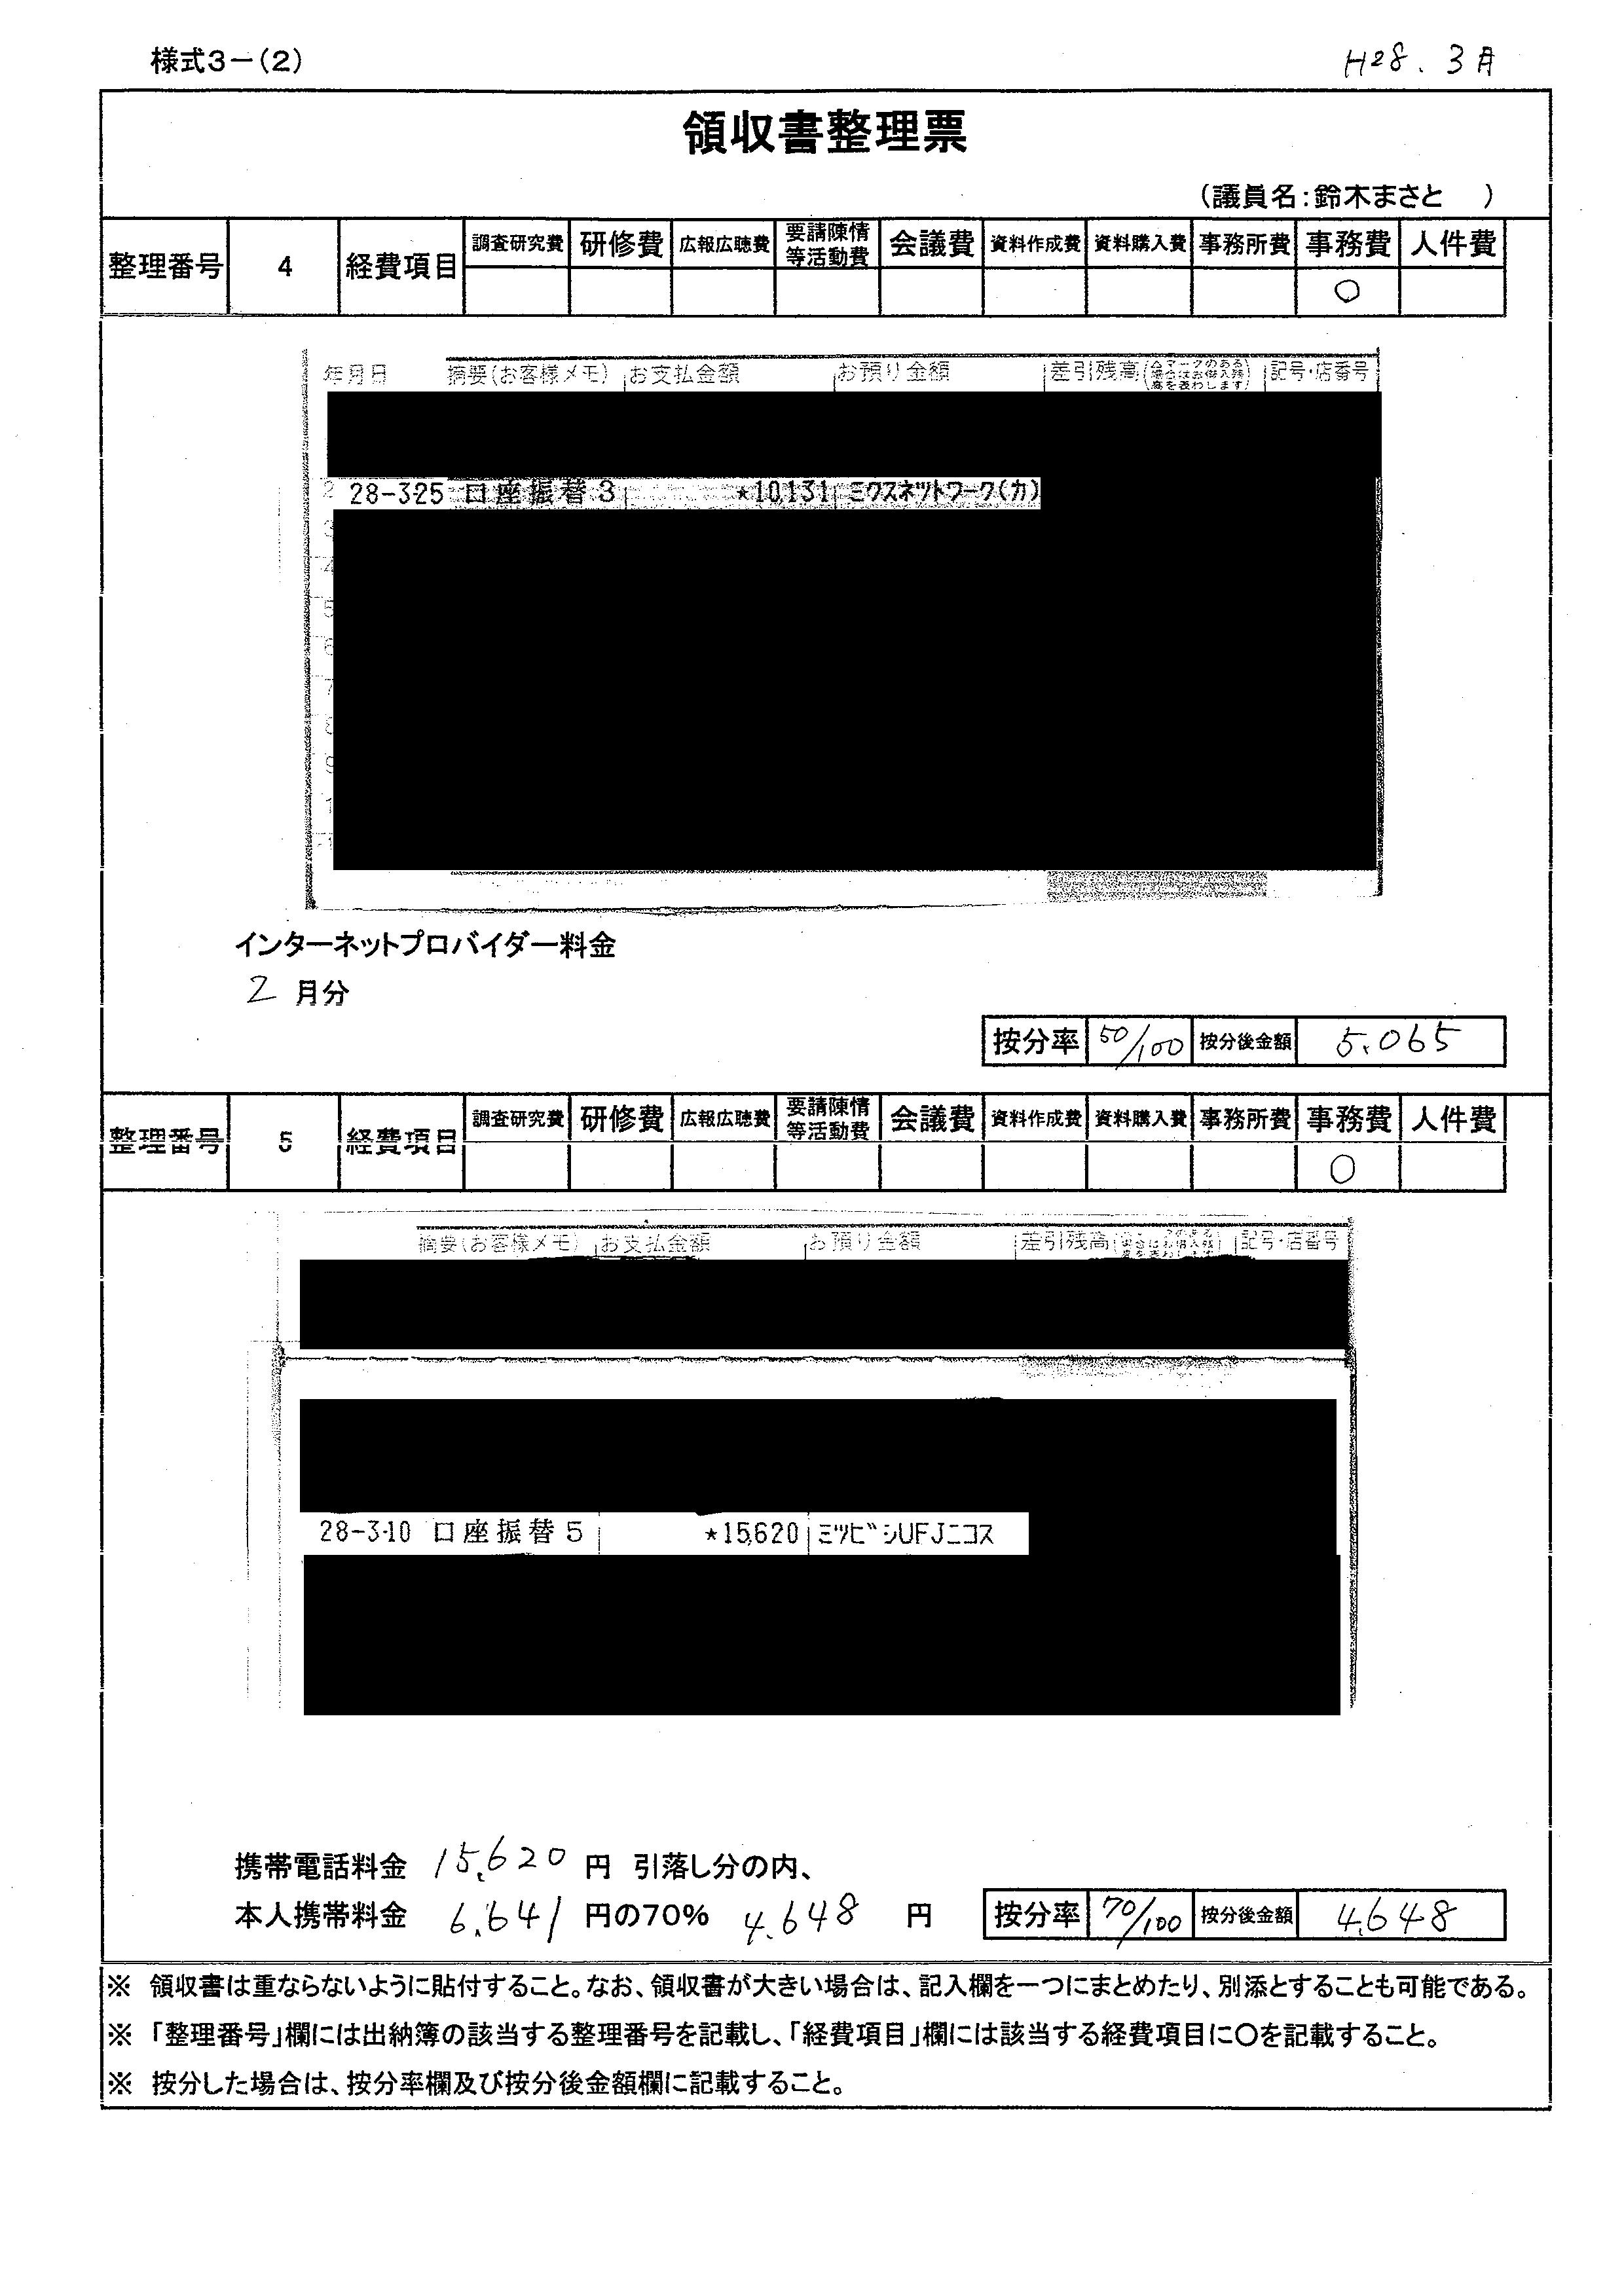 様式3－(2)
H28. 3月
領収書整理票
(議員名:鈴木まさと　)
整理番号 4 経費項目 調査研究費 研修費 広報広聴費 要請陳情等活動費 会議費 資料作成費 資料購入費 事務所費 事務費 人件費
○
年月日 摘要(お客様メモ) お支払金額 お預り金額 差引残高 記号・店番号
2 28-3-25 口座振替3 ★10,131 ミクスネツトワーク(カ)
3
4
5
6
7
8
9
1
インターネットプロバイダー料金
2 月分
按分率 50/100 按分後金額 5,065
整理番号 5 経費項目 調査研究費 研修費 広報広聴費 要請陳情等活動費 会議費 資料作成費 資料購入費 事務所費 事務費 人件費
○
摘要(お客様メモ) お支払金額 お預り金額 差引残高 記号・店番号
28-3-10 口座振替5 ★15,620 ミツビシUFJニコス
携帯電話料金 15,620 円 引落し分の内、
本人携帯料金 6,641 円の70% 4,648 円
按分率 70/100 按分後金額 4,648
※ 領収書は重ならないように貼付すること。なお、領収書が大きい場合は、記入欄を一つにまとめたり、別添とすることも可能である。
※ 「整理番号」欄には出納簿の該当する整理番号を記載し、「経費項目」欄には該当する経費項目に○を記載すること。
※ 按分した場合は、按分率欄及び按分後金額欄に記載すること。